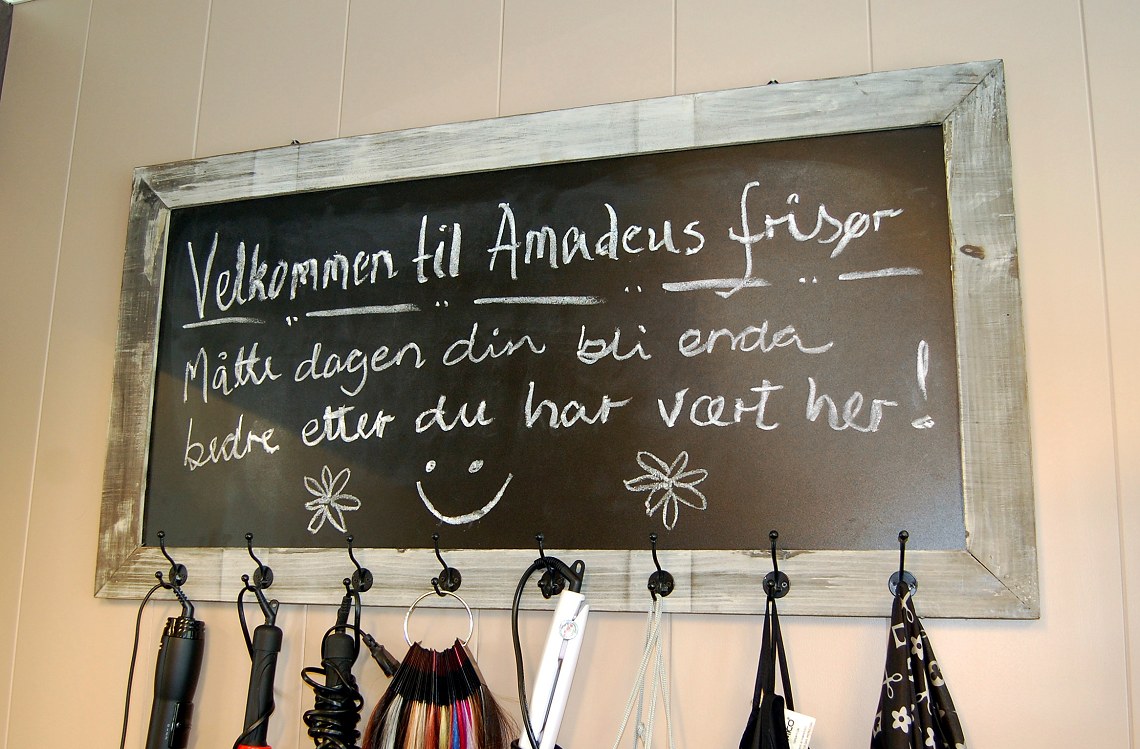 Velkommen til Amadeus frisør
Måtte dagen din bli enda
bedre etter du har vært her!